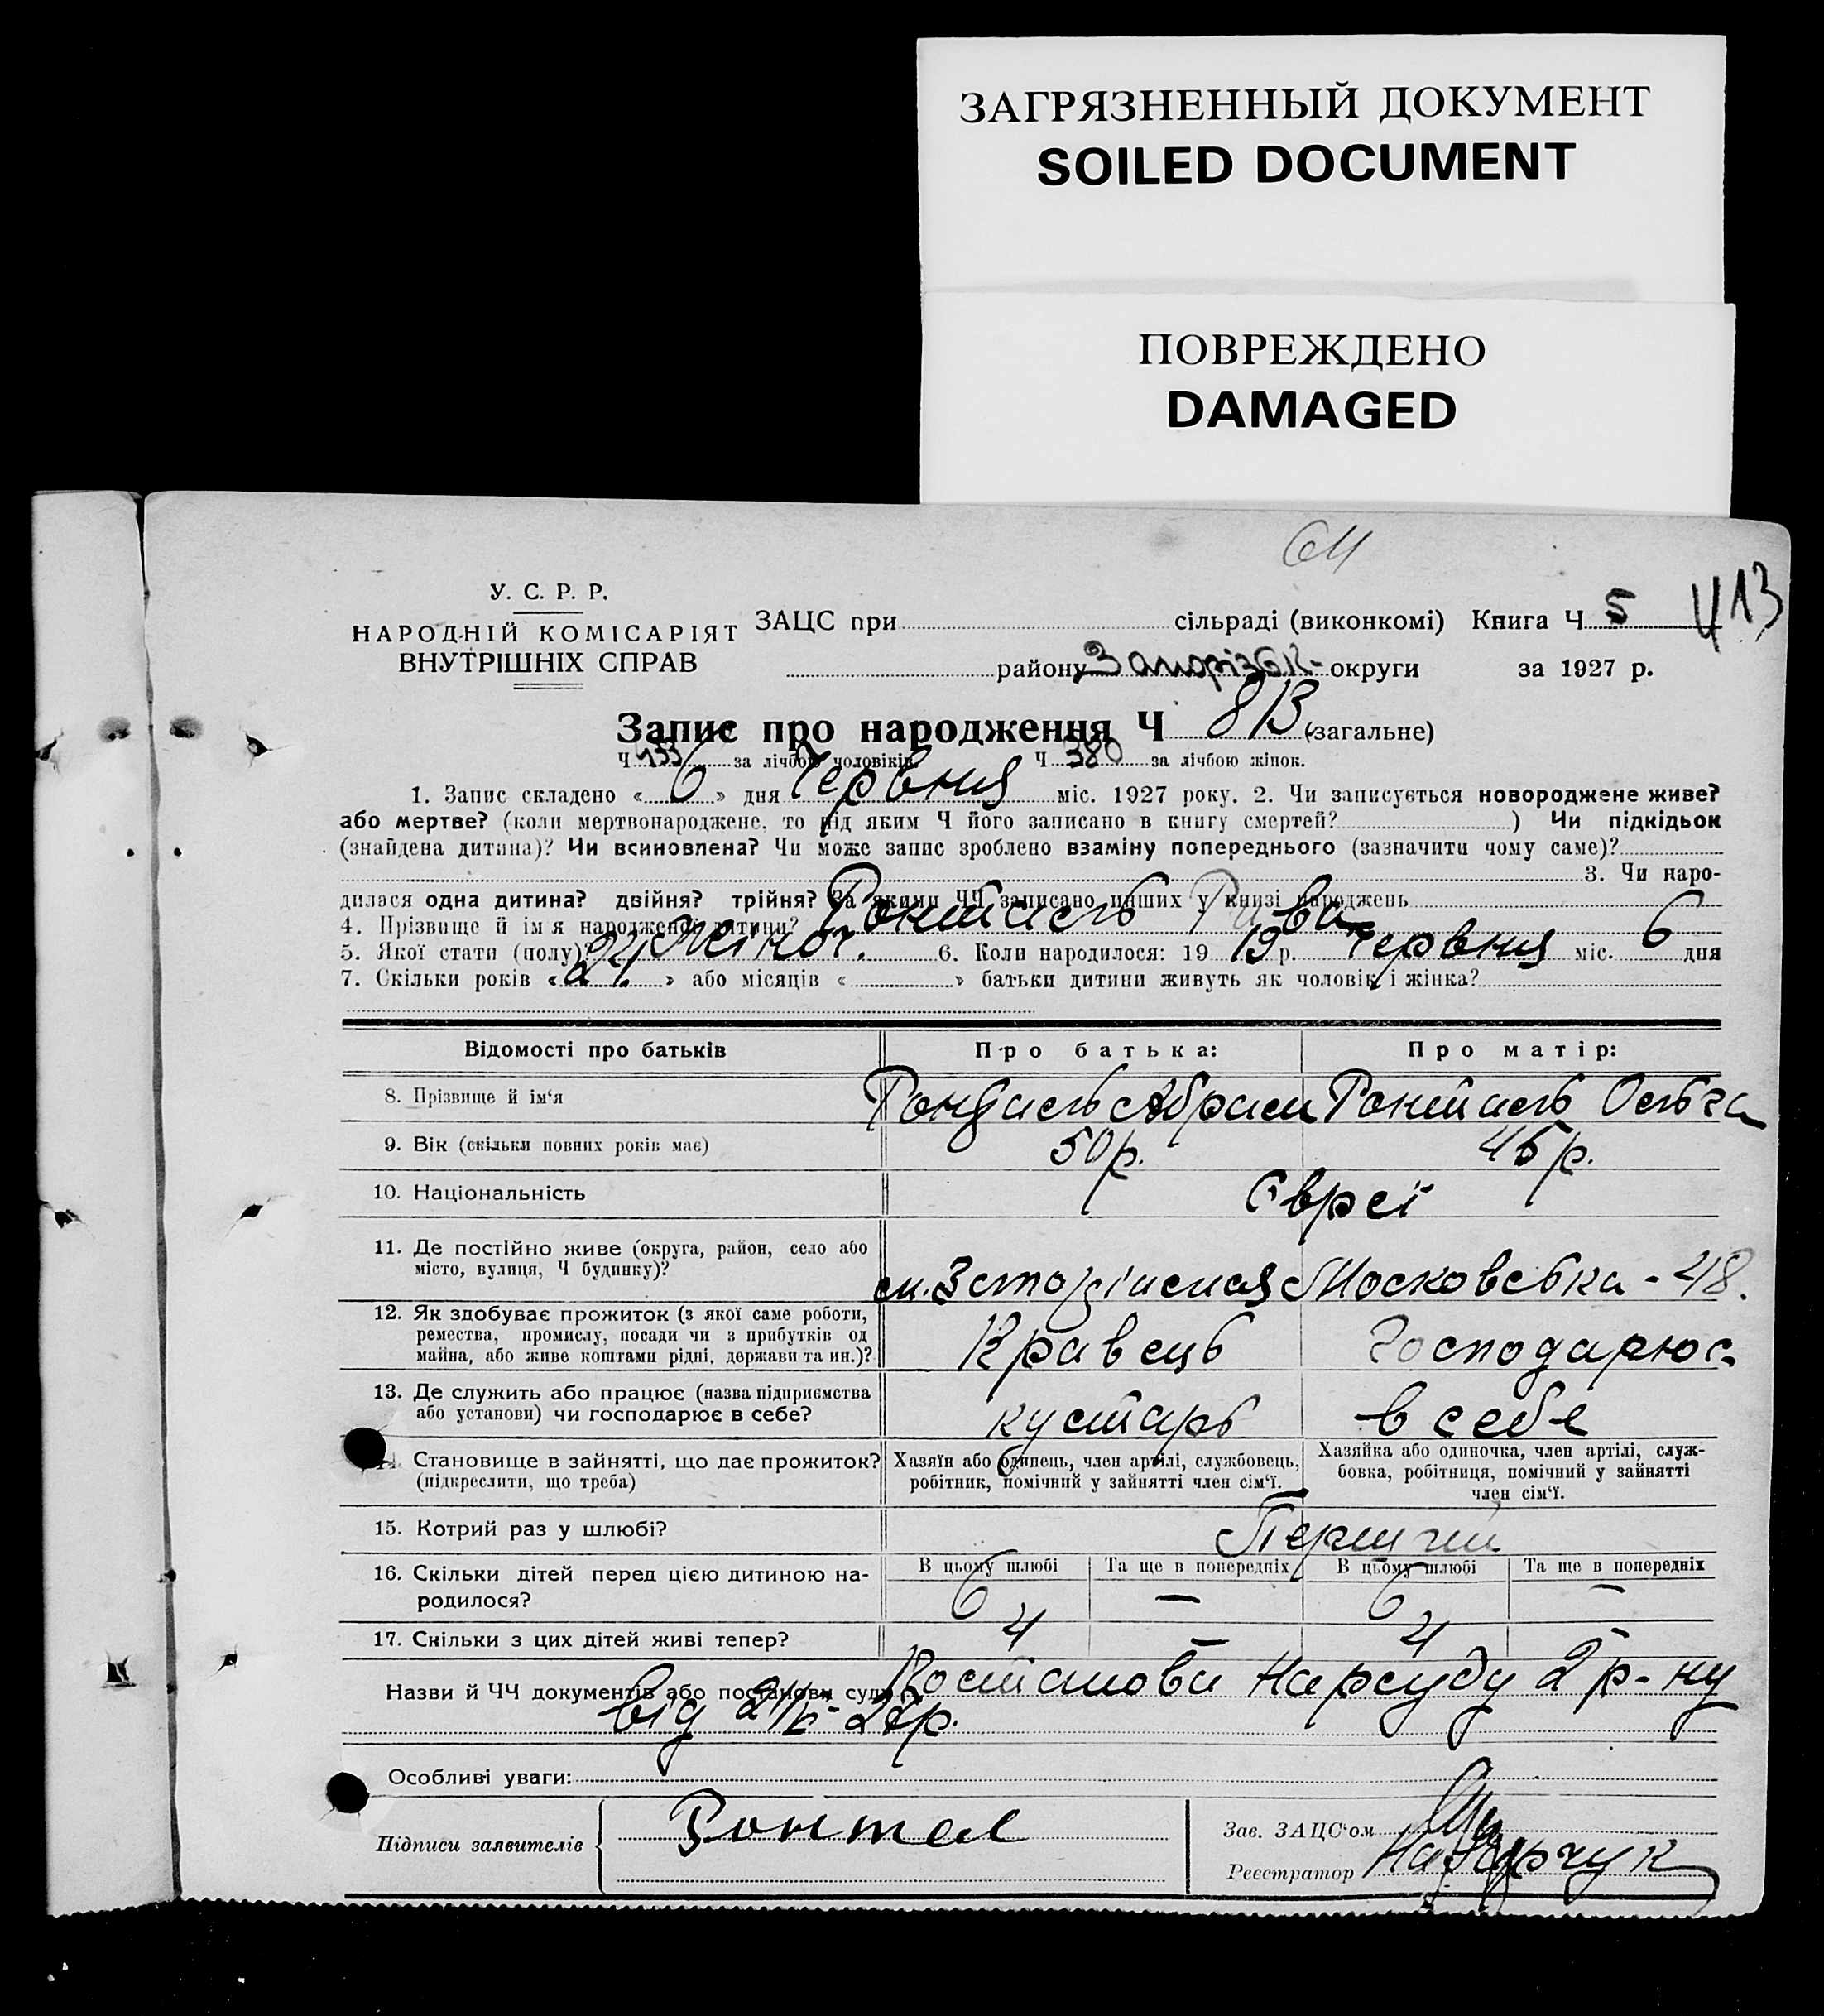 ЗАГРЯЗНЕННЫЙ ДОКУМЕНТ
SOILED DOCUMENT
ПОВРЕЖДЕНО
DAMAGED
У. С. Р. Р.
НАРОДНІЙ КОМІСАРІЯТ
ВНУТРІШНІХ СПРАВ
413
ЗАЦС при сільраді (виконкомі) Книга Ч 5
району Запорізьк- округи за 1927 р.
Запис про народження Ч 813 (загальне)
Ч 433 за лічбою чоловіків. Ч 380 за лічбою жінок.
1. Запис складено « 6 » дня Червня міс. 1927 року. 2. Чи записується новороджене живе?
або мертве? (коли мертвонароджене, то під яким Ч його записано в книгу смертей? ) Чи підкідьок
(знайдена дитина)? Чи всиновлена? Чи може запис зроблено взаміну попереднього (зазначити чому саме)?
3. Чи наро-
дилася одна дитина? двійня? трійня? За якими ЧЧ записано инших у книзі народжень
4. Прізвище й ім'я народженої дитини? Ронталь Рива
5. Якої стати (полу)? Жіноч. 6. Коли народилося: 19 19 р. Червня міс. 6 дня
7. Скільки років « 24 » або місяців « » батьки дитини живуть як чоловік і жінка?
Відомості про батьків
Про батька:
Про матір:
8. Прізвище й ім'я Ронталь Абрам Ронталь Ольга
9. Вік (скільки повних років має) 50 р. 45 р.
10. Національність Євреї
11. Де постійно живе (округа, район, село або
місто, вулиця, Ч будинку)?
Московська - 48.
12. Як здобуває прожиток (з якої саме роботи,
ремества, промислу, посади чи з прибутків од
майна, або живе коштами рідні, держави та ин.)?
Кравець Господарює
13. Де служить або працює (назва підприємства
або установи) чи господарює в себе?
кустарь в себе
14. Становище в зайнятті, що дає прожиток?
(підкреслити, що треба)
Хазяїн або одинець, член артілі, службовець,
робітник, помічний у зайнятті член сім'ї.
Хазяйка або одиночка, член артілі, служ-
бовка, робітниця, помічний у зайнятті
член сім'ї.
15. Котрий раз у шлюбі? Перший
16. Скільки дітей перед цією дитиною на-
родилося?
В цьому шлюбі Та ще в попередніх В цьому шлюбі Та ще в попередніх
6 — 6 —
17. Скільки з цих дітей живі тепер? 4 — 4 —
Назви й ЧЧ документів або постанови суду Постанова Нарсуду 2 р-ну
від
Особливі уваги:
Підписи заявителів Ронтал
Зав. ЗАЦС'ом
Реєстратор